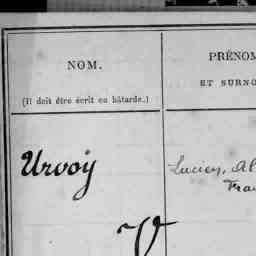 NOM.
(Il doit être écrit en bâtarde.)
PRÉNOM
ET SURNO
Urvoy
Lucien, Al
Fra